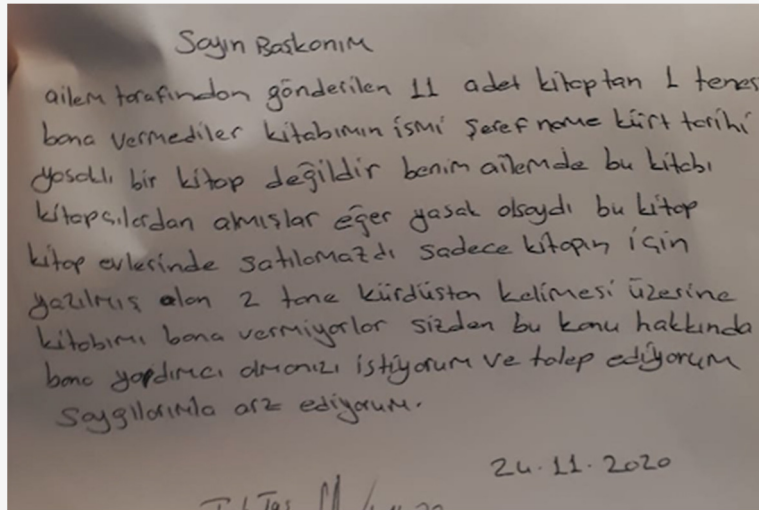 Sayın Başkanım
ailem tarafından gönderilen 11 adet kitaptan 1 tenes
bana vermediler kitabımın ismi Şerefname kürt tarihi
yasaklı bir kitap değildir benim ailemde bu kitabı
kitapçılardan almışlar eğer yasak olsaydı bu kitap
kitap evlerinde satılamazdı sadece kitapın için
yazılmış olan 2 tane kürdüstan kelimesi üzerine
kitabımı bana vermiyorlar sizden bu konu hakkında
bana yardımcı olmanızı istiyorum ve talep ediyorum
Saygılarımla arz ediyorum.
24.11.2020